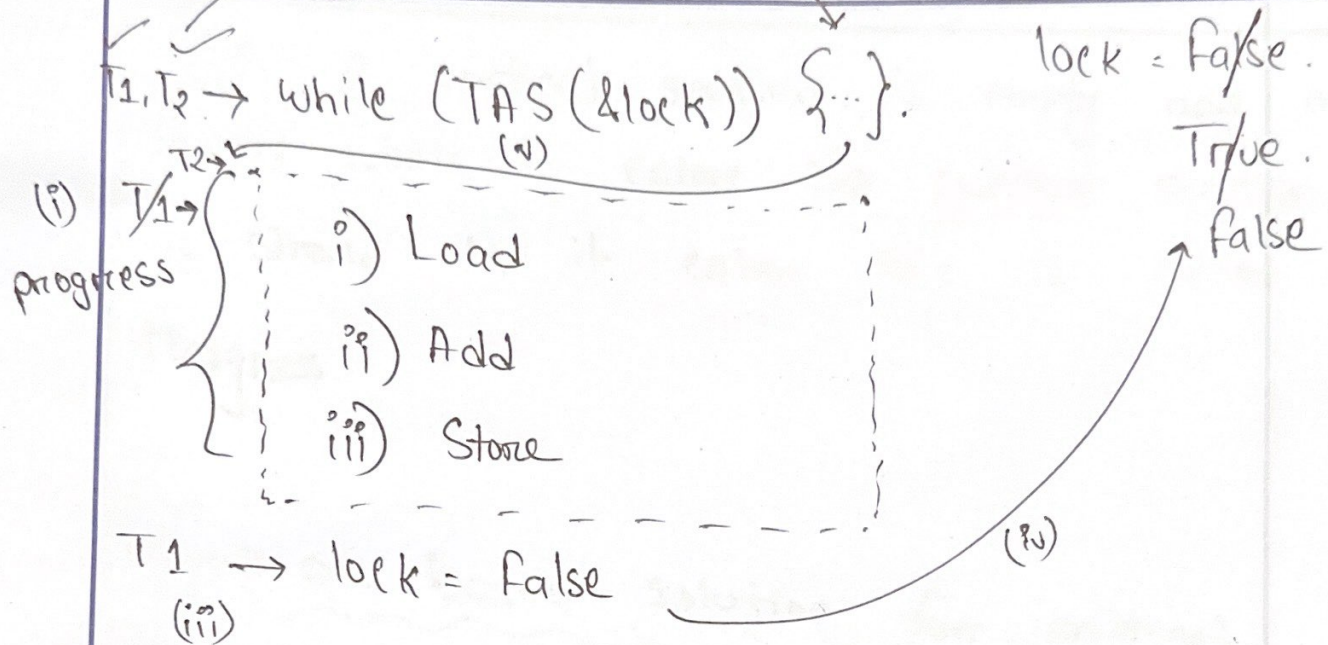 T1, T2 → while (TAS (&lock)) {...}.
lock = False.
True.
False
(v)
T2→
(i) T1→
progress
i) Load
ii) Add
iii) Store
T1 → lock = False
(iii)
(iv)